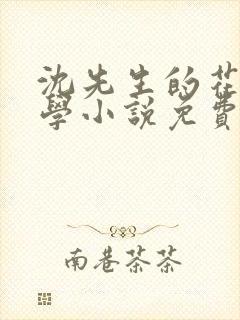 沈先生的花
學小說免費
南巷茶茶